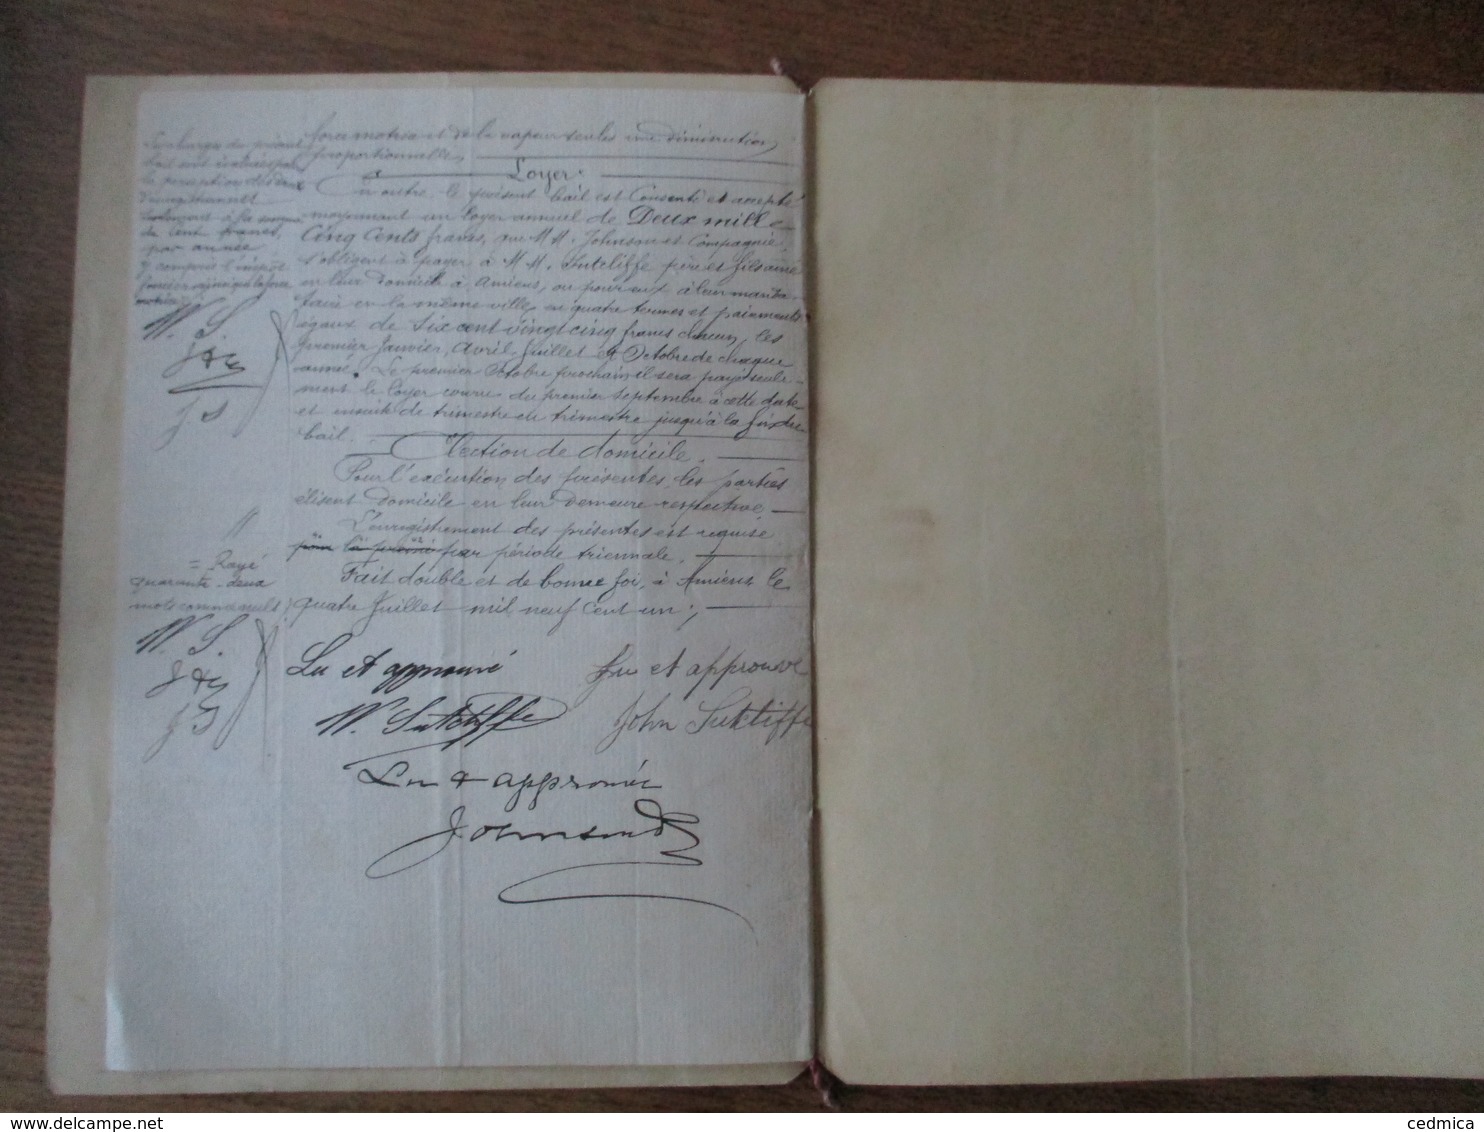 force motrice et de la vapeur seules une diminution
proportionnelle.
Loyer:
En outre le présent bail est Consenti et accepté
moyennant un loyer annuel de Deux mille
Cinq Cents francs, que MM. Johnson et Compagnie
s'obligent à payer à MM. Sutcliffe père et fils aîné
en leur domicile à Amiens, ou pour eux à leur manda-
taire en la même ville, en quatre termes et paiements
égaux de Six cent vingt cinq francs chacun, les
premier Janvier, Avril, Juillet et Octobre de chaque
année. Le premier Octobre prochain il sera payé seule-
ment le loyer couru du premier Septembre à cette date
et ensuite de trimestre en trimestre jusqu'à la fin du
bail.
Election de domicile.
Pour l'exécution des présentes, les parties
élisent domicile en leur demeure respective.
L'enregistrement des présentes est requise
par période triennale.
Fait double et de bonne foi, à Amiens le
quatre Juillet mil neuf cent un;
Les charges du présent
bail sont évaluées pour
la perception des droits
d'enregistrement
seulement à la somme
de Cent francs,
par année
y compris l'impôt
foncier
W. S.
J S
= Rayé
quarante-deux
mots comme nuls
W. S.
J S
Lu et approuvé
Lu et approuvé
W. Sutcliffe
John Sutcliffe
Lu & approuvé
Johnson
cedmica